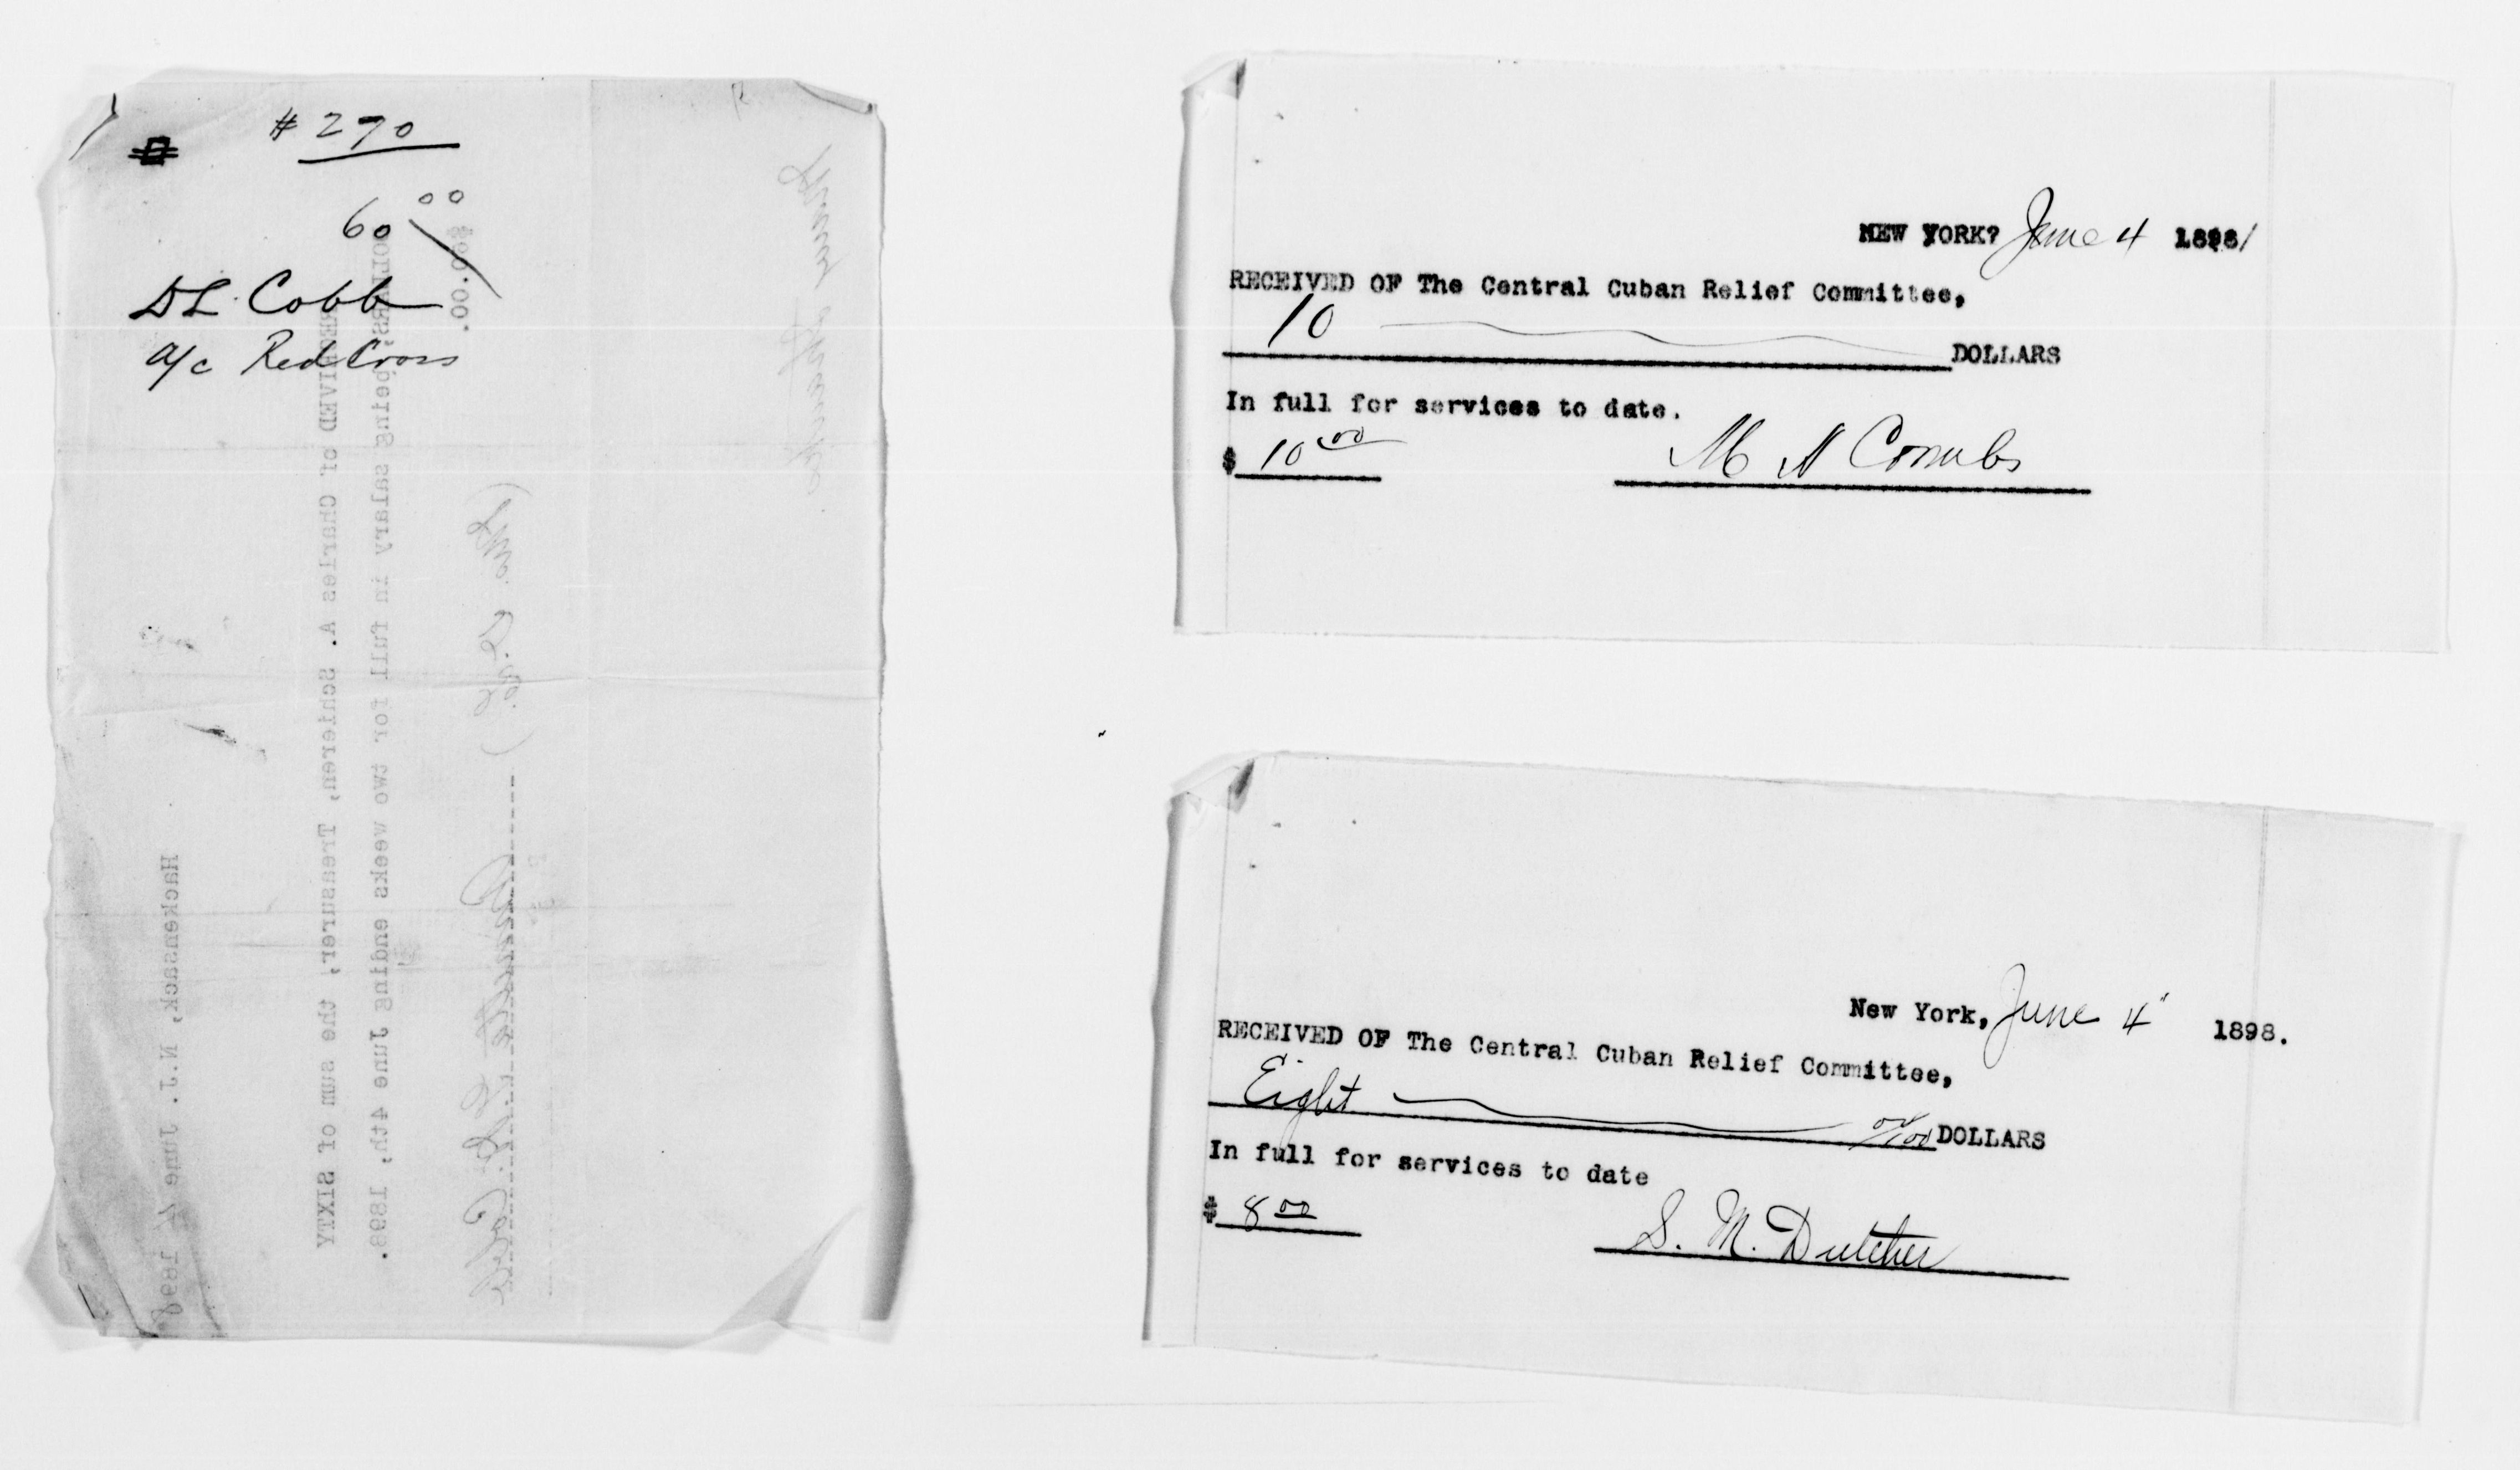 # 270
60 00
D L. Cobb
a/c Red Cross
Hackensack, N.J. June 4 1898
RECEIVED of Charles A. Schieren, Treasurer, the sum of SIXTY
DOLLARS, being salary in full for two weeks ending June 4th, 1898.
$60.00.
NEW YORK? June 4 1898
RECEIVED OF The Central Cuban Relief Committee,
10 DOLLARS
In full for services to date.
$ 10 00 M A Combs
New York, June 4" 1898.
RECEIVED OF The Central Cuban Relief Committee,
Eight 00/100 DOLLARS
In full for services to date
$ 8 00 S. M. Dutcher